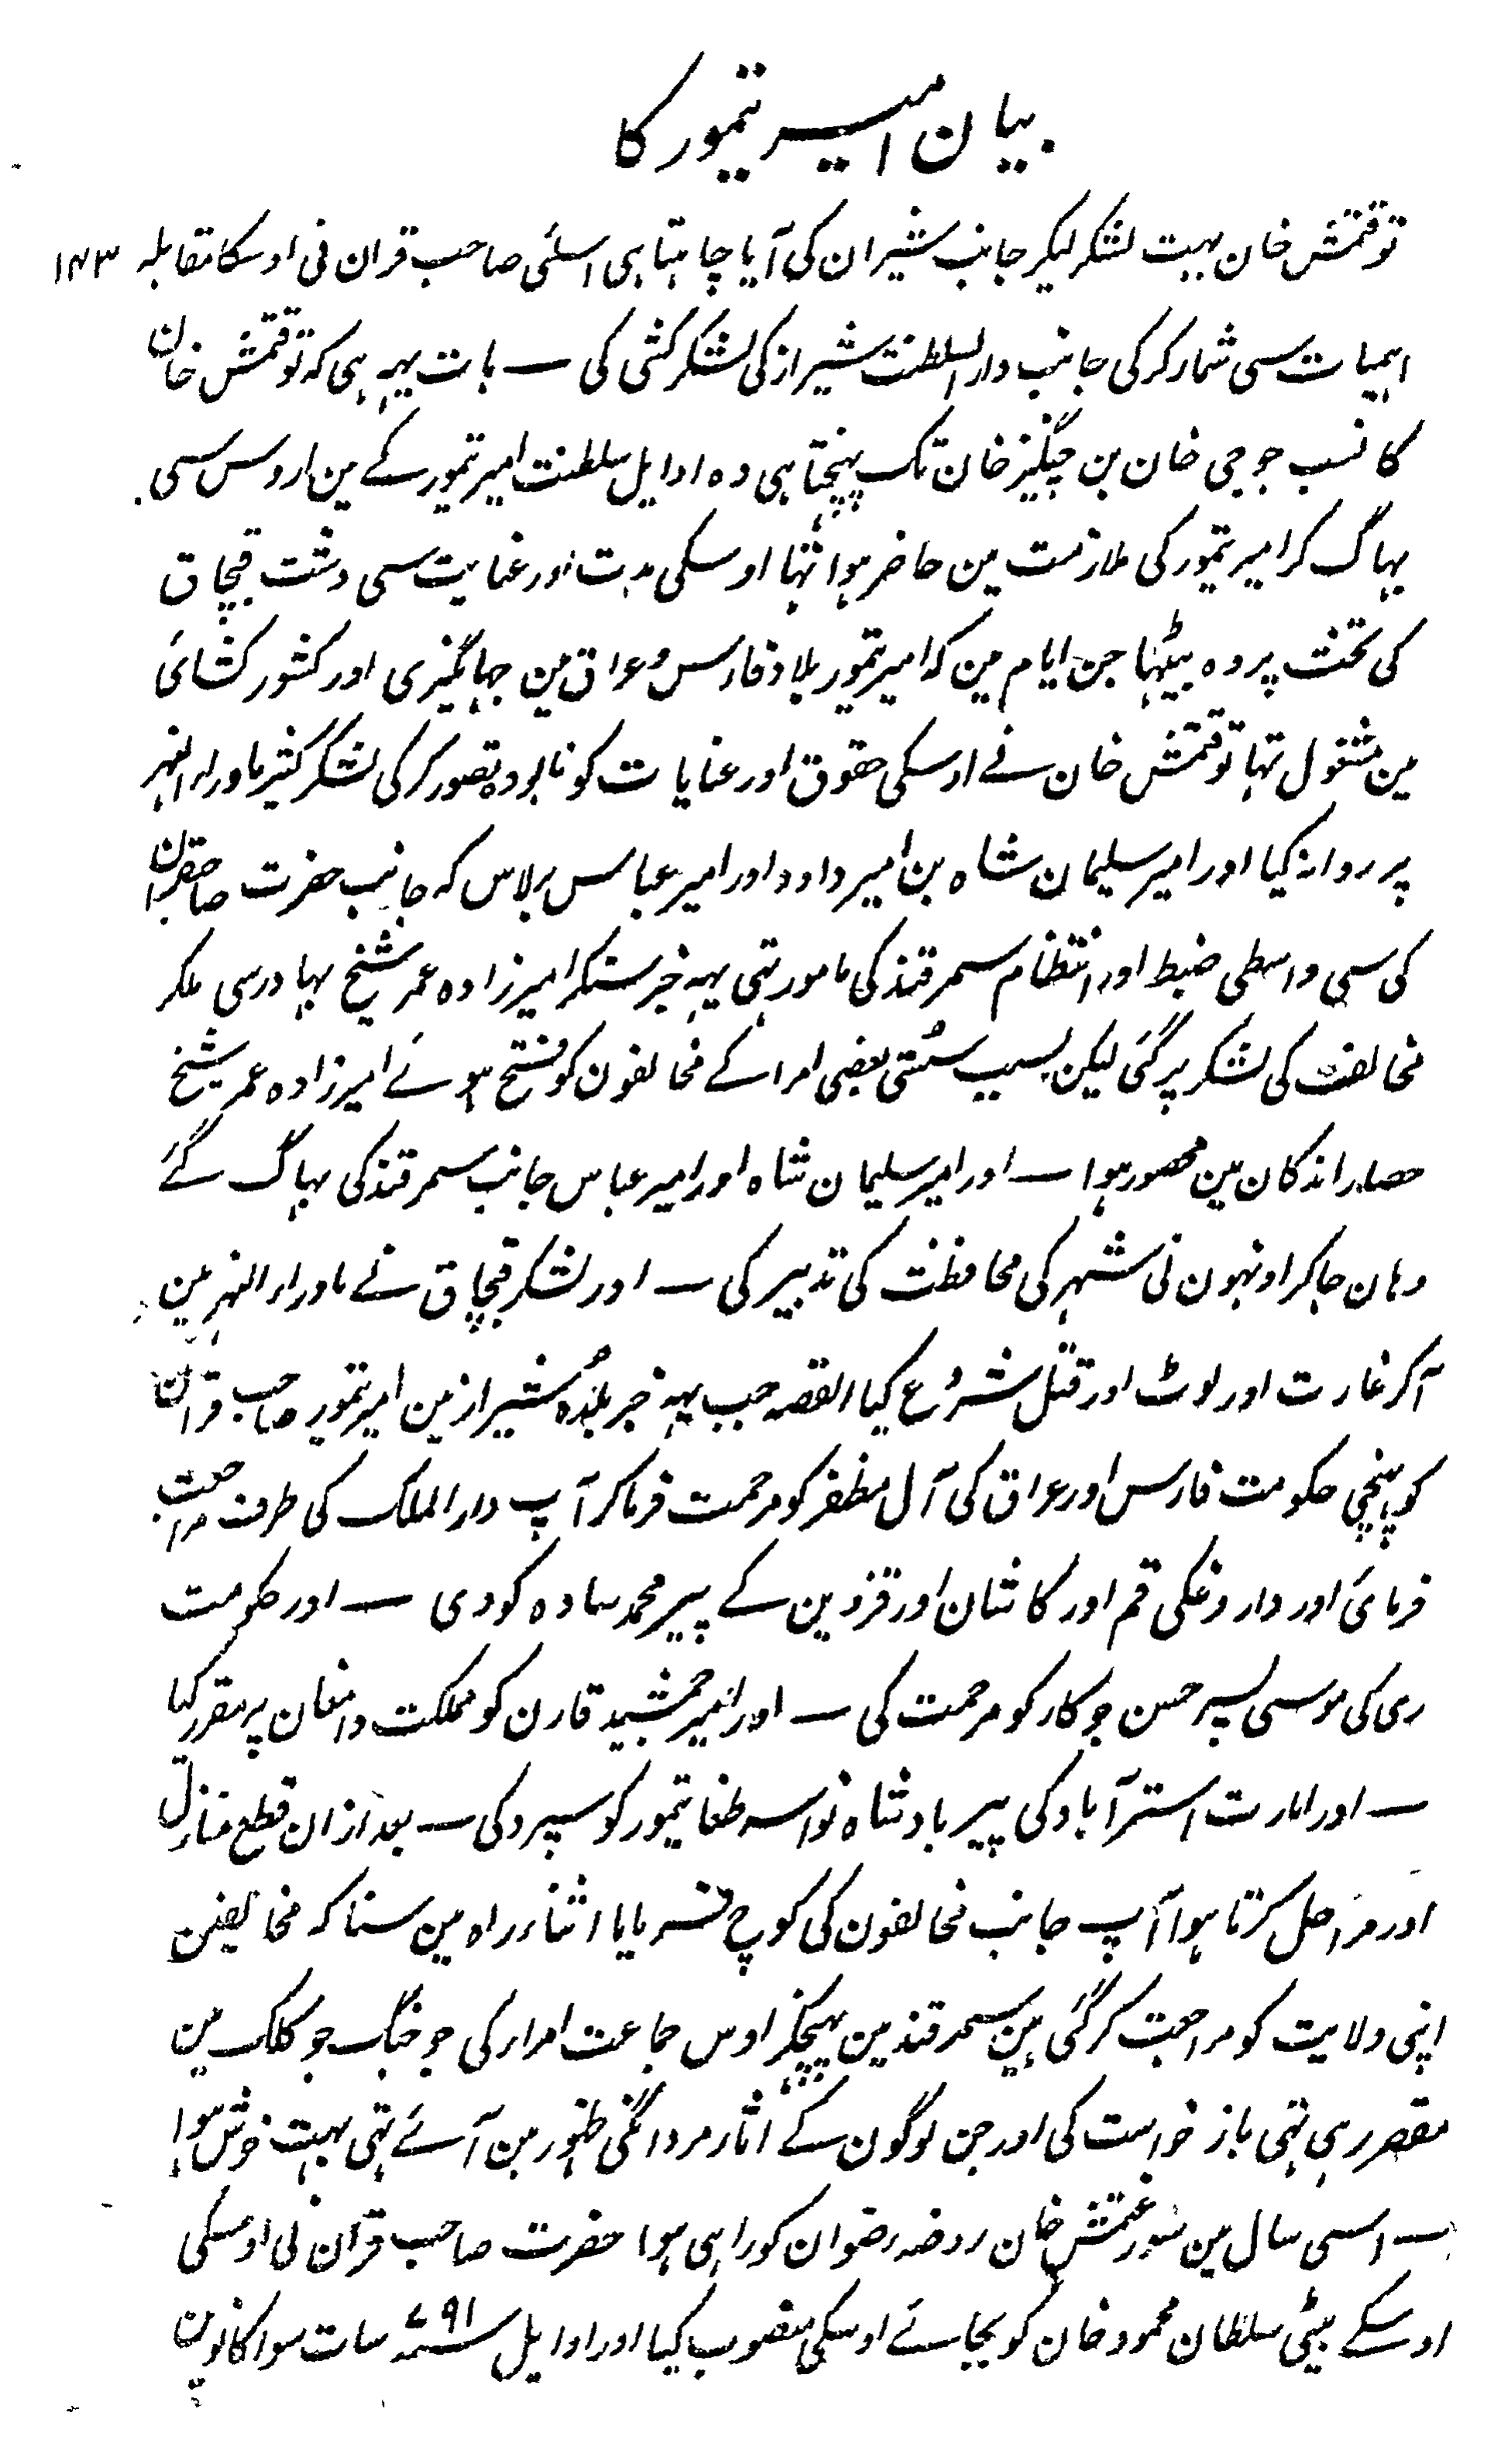 بیان امیر تیمور کا
توقتمش خان بہت لشکر لیکر جانب شیران کی آیا چاہتا ہی اسلئی صاحب قران نی اوسکا مقابلہ ۱۴۳
اہمیات سی شمار کر کی جانب دار السلطنت شیراز کی لشکر کشی کی ــ بات یہہ ہی کہ توقتمش خان
کا نسب جوجی خان بن چنگیز خان تک پہنچتا ہی وہ اوایل سلطنت امیر تیمور کے مین اروس سی
بہاگ کر امیر تیمور کی ملازمت مین حاضر ہوا تہا اوسکی مدت اور عنایت سی دشت قبچاق
کی تخت پر وہ بیٹہا جن ایام مین کہ امیر تیمور بلاد فارس و عراق مین جہانگیری اور کشور کشائی
مین مشغول تہا توقتمش خان نے اوسکی حقوق اور عنایات کو نابودہ تصور کر کی لشکر کثیر ماوراء النہر
پر روانہ کیا اور امیر سلیمان شاہ بن امیر داود اور امیر عباس برلاس کہ جانب حضرت صاحبقران
کی سی واسطی ضبط اور انتظام سمرقند کی مامور تہی یہہ خبر سنکر امیرزادہ عمر شیخ بہادر سی ملکر
مخالفت کی لشکر پر گئی لیکن بسبب سستی بعضی امرا کے مخالفون کو فتح ہوئے امیرزادہ عمر شیخ
حصار اندکان مین محصور ہوا ــ اور امیر سلیمان شاہ اور امیر عباس جانب سمرقند کی بہاگ گئے
وہان جاکر اونہون نی شہر کی محافظت کی تدبیر کی ــ اور لشکر قبچاق نے ماوراء النہر مین
آکر غارت اور لوٹ اور قتل شروع کیا القصہ جب یہہ خبر بلدہ شیراز مین امیر تیمور صاحب قران
کو پہنچی حکومت فارس اور عراق کی آل مظفر کو مرحمت فرماکر آپ دار الملک کی طرف مراجعت
فرمائی اور داروغگی قم اور کاشان اور قزوین کے پیر محمد ساوہ کو دی ــ اور حکومت
ری کی موسی پسر حسن جوکار کو مرحمت کی ــ اور امیر جمشید قارن کو مملکت دامغان پر مقرر کیا
ــ اور امارت استرآباد کی پیر بادشاہ نواسہ طغا تیمور کو سپرد کی ــ بعد ازان قطع منازل
اور مراحل کرتا ہوا آپ جانب مخالفون کی کوچ فرمایا اثناء راہ مین سنا کہ مخالفین
اپنی ولایت کو مراجعت کر گئی ہین سمرقند مین پہنچکر اوس جماعت امراء کی جو جنگ جوکلک مین
مقصر رہی تہی باز خواست کی اور جن لوگون کے اثار مردانگی ظہور مین آئے تہی بہت خوش ہوا
ــ اسی سال مین سیورغتمش خان روضہ رضوان کو راہی ہوا حضرت صاحب قران نی اوسکی
اوسکے بیٹی سلطان محمود خان کو بجائے اوسکی منصوب کیا اور اوایل سنہ ۷۹۱ سات سو اکانوین